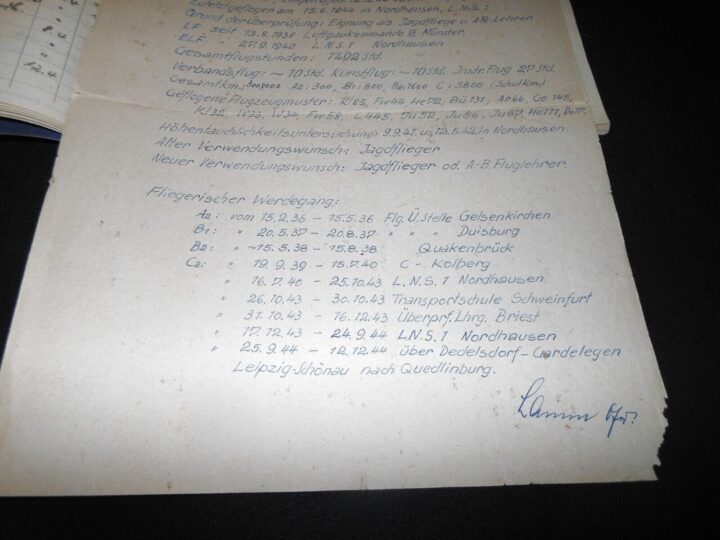 Zuletzt geflogen am 15.6.1944 in Nordhausen, L.N.S.1.
Grund der Überprüfung: Eignung als Jagdflieger u. A/B-Lehrer.
LF seit 13.8.1938 Luftgaukommando VI Münster.
ELF " 27.9.1940 L.N.S.1 Nordhausen
Gesamtflugstunden: 1402 Std.
Verbandsflug: ~ 10 Std. Kunstflug: ~ 10 Std. Instr. Flug 27 Std.
Gesamtkm.: 300000 A2: 300, B1: 800, B2: 1600 C: 5800 (Schulkm.)
Geflogene Flugzeugmuster: Kl 25, Fw 44, He 72, Bü 131, Ar 66, Go 145,
Kl 32, W 33, W 34, Fw 58, L 445, Ju 52, Ju 86, Ju 87, He 111, Do 17.
Höhentauchlichkeitsuntersuchung: 9.9.41 u. 12.5.42 in Nordhausen.
Alter Verwendungswunsch: Jagdflieger
Neuer Verwendungswunsch: Jagdflieger od. A-B. Fluglehrer.
Fliegerischer Werdegang:
A2: vom 15.2.36 – 15.5.36 Flg. Ü. Stelle Gelsenkirchen.
B1: " 20.5.37 – 20.8.37 " " " Duisburg
B2: " ~15.5.38 – 15.8.38 Quakenbrück
C2: " 19.9.39 – 15.7.40 C – Kolberg
" 16.7.40 – 25.10.43 L.N.S.1 Nordhausen
" 26.10.43 – 30.10.43 Transportschule Schweinfurt
" 31.10.43 – 16.12.43 Überprf. Lhrg. Briest
" 17.12.43 – 24.9.44 L.N.S.1 Nordhausen
" 25.9.44 – 12.12.44 über Dedelsdorf-Gardelegen
Leipzig-Schönau nach Quedlinburg.